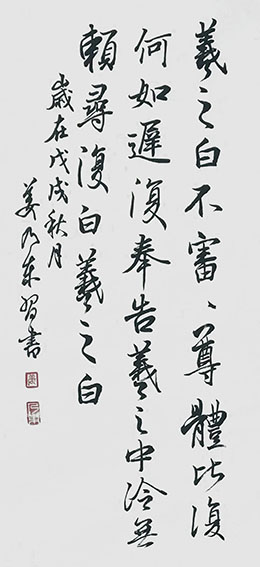 羲之白不審、尊體比復
何如遲復奉告羲之中冷無
賴尋復白羲之白
歲在戊戌秋月
姜乃東習書